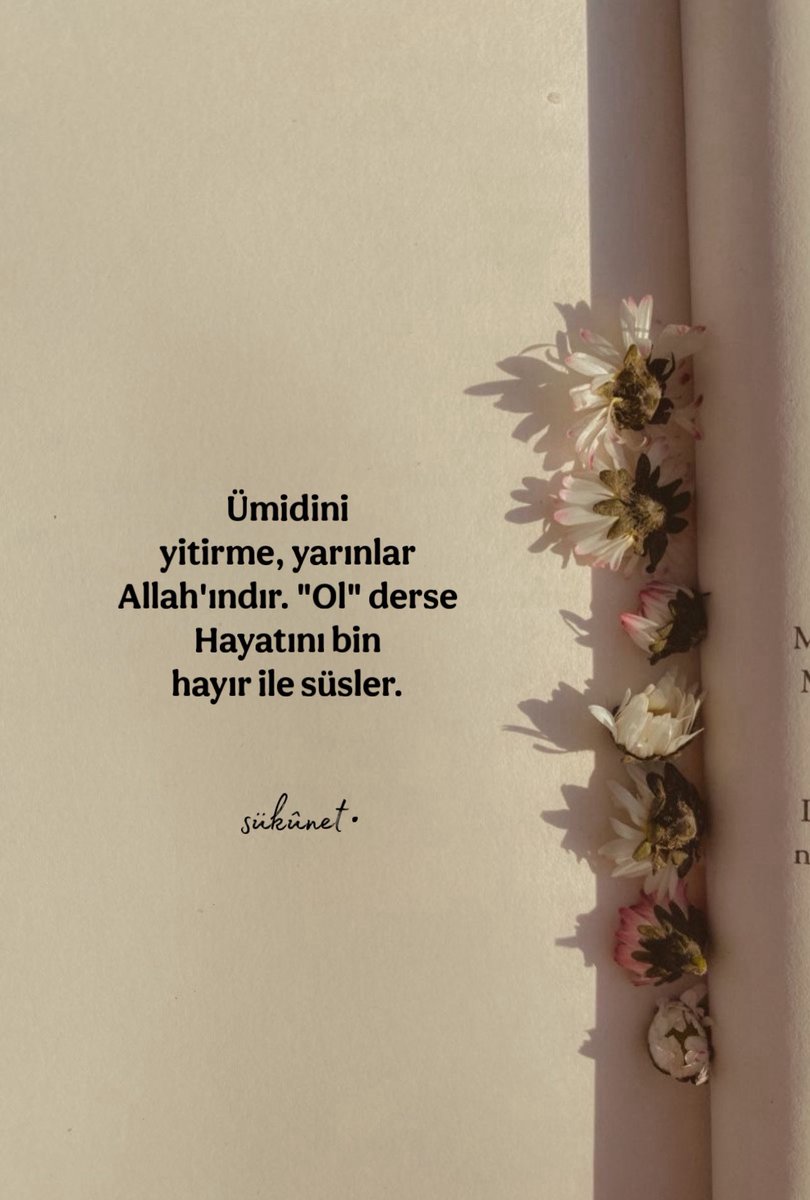 Ümidini
yitirme, yarınlar
Allah'ındır. "Ol" derse
Hayatını bin
hayır ile süsler.
sükûnet.